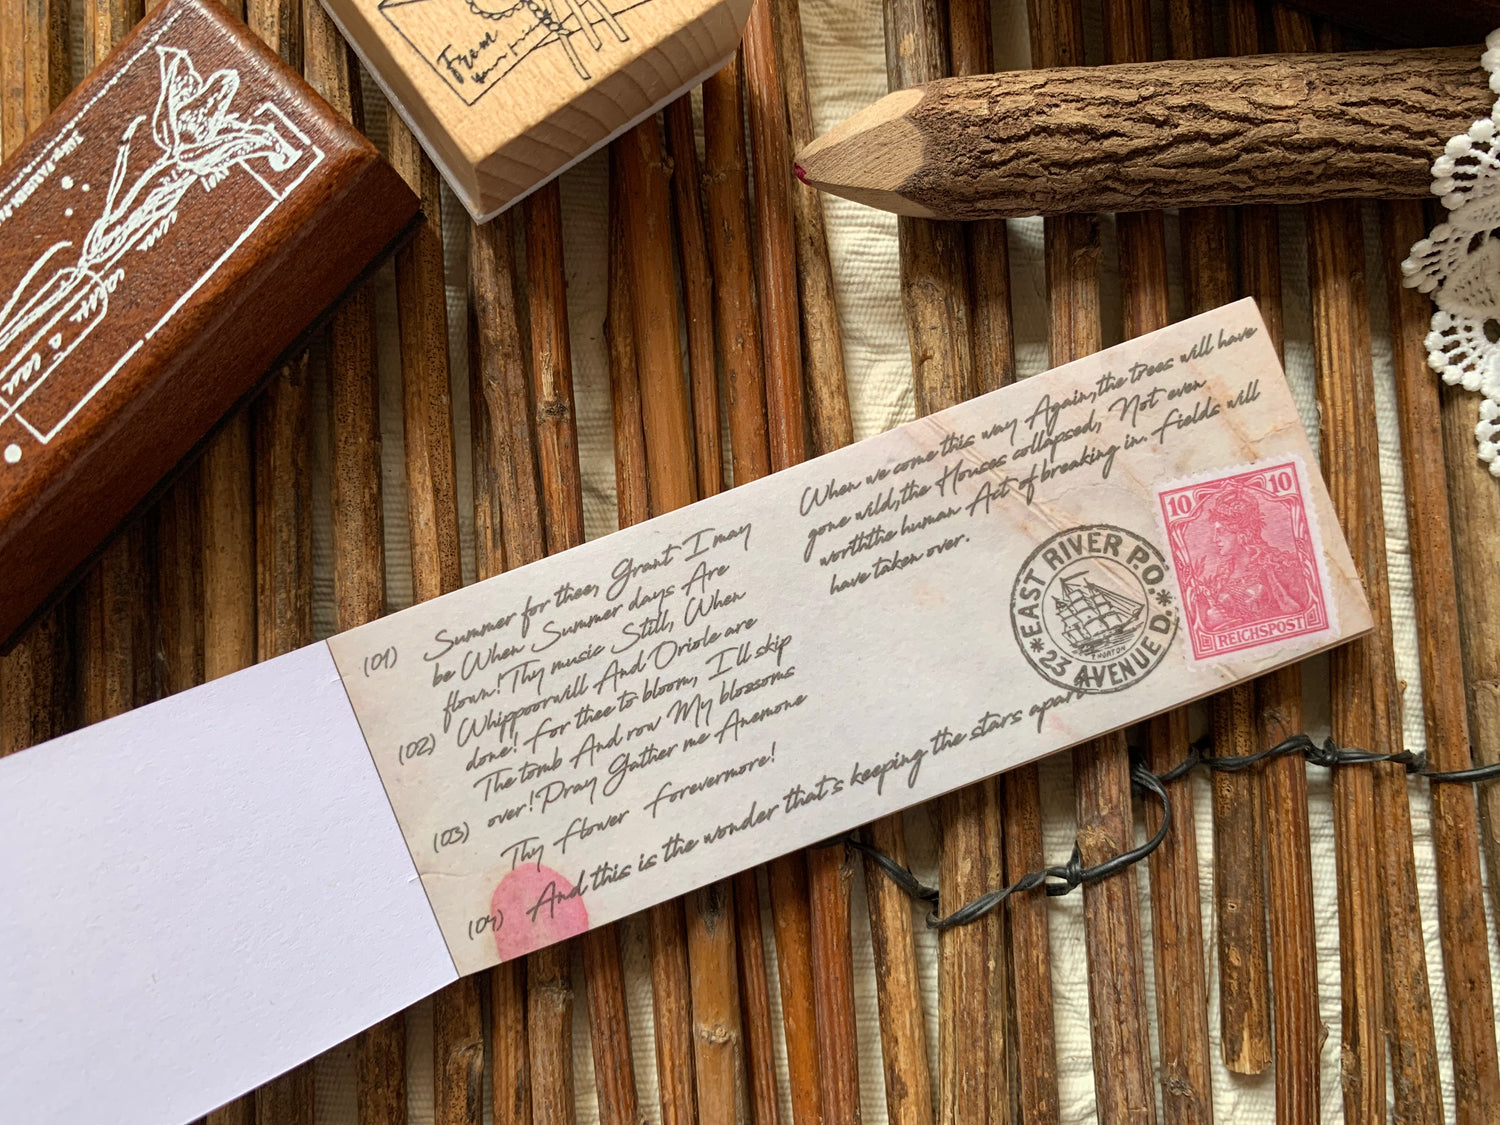 From
(01)
Summer for thee, Grant I may
be When Summer days Are
flown! Thy music Still, When
(02)
Whippoorwill And Oriole are
done! For thee to bloom, I'll skip
The tomb And row My blossoms
over! Pray Gather me Anemone
(03)
Thy flower Forevermore!
(04)
And this is the wonder that's keeping the stars apart
When we come this way Again,the trees will have
gone wild,the Houses collapsed, Not even
worththe human Act of breaking in. Fields will
have taken over.
EAST RIVER P.O.
23 AVENUE D.
10 10
REICHSPOST